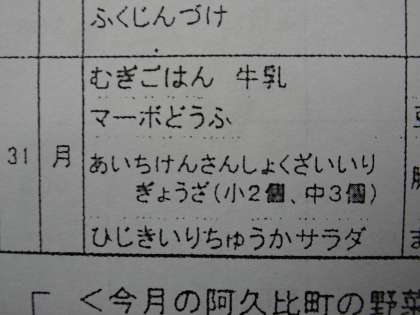 ふくじんづけ
むぎごはん 牛乳
マーボどうふ
31 月
あいちけんさんしょくざいいり
ぎょうざ(小2個、中3個)
ひじきいりちゅうかサラダ
<今月の阿久比町の野菜